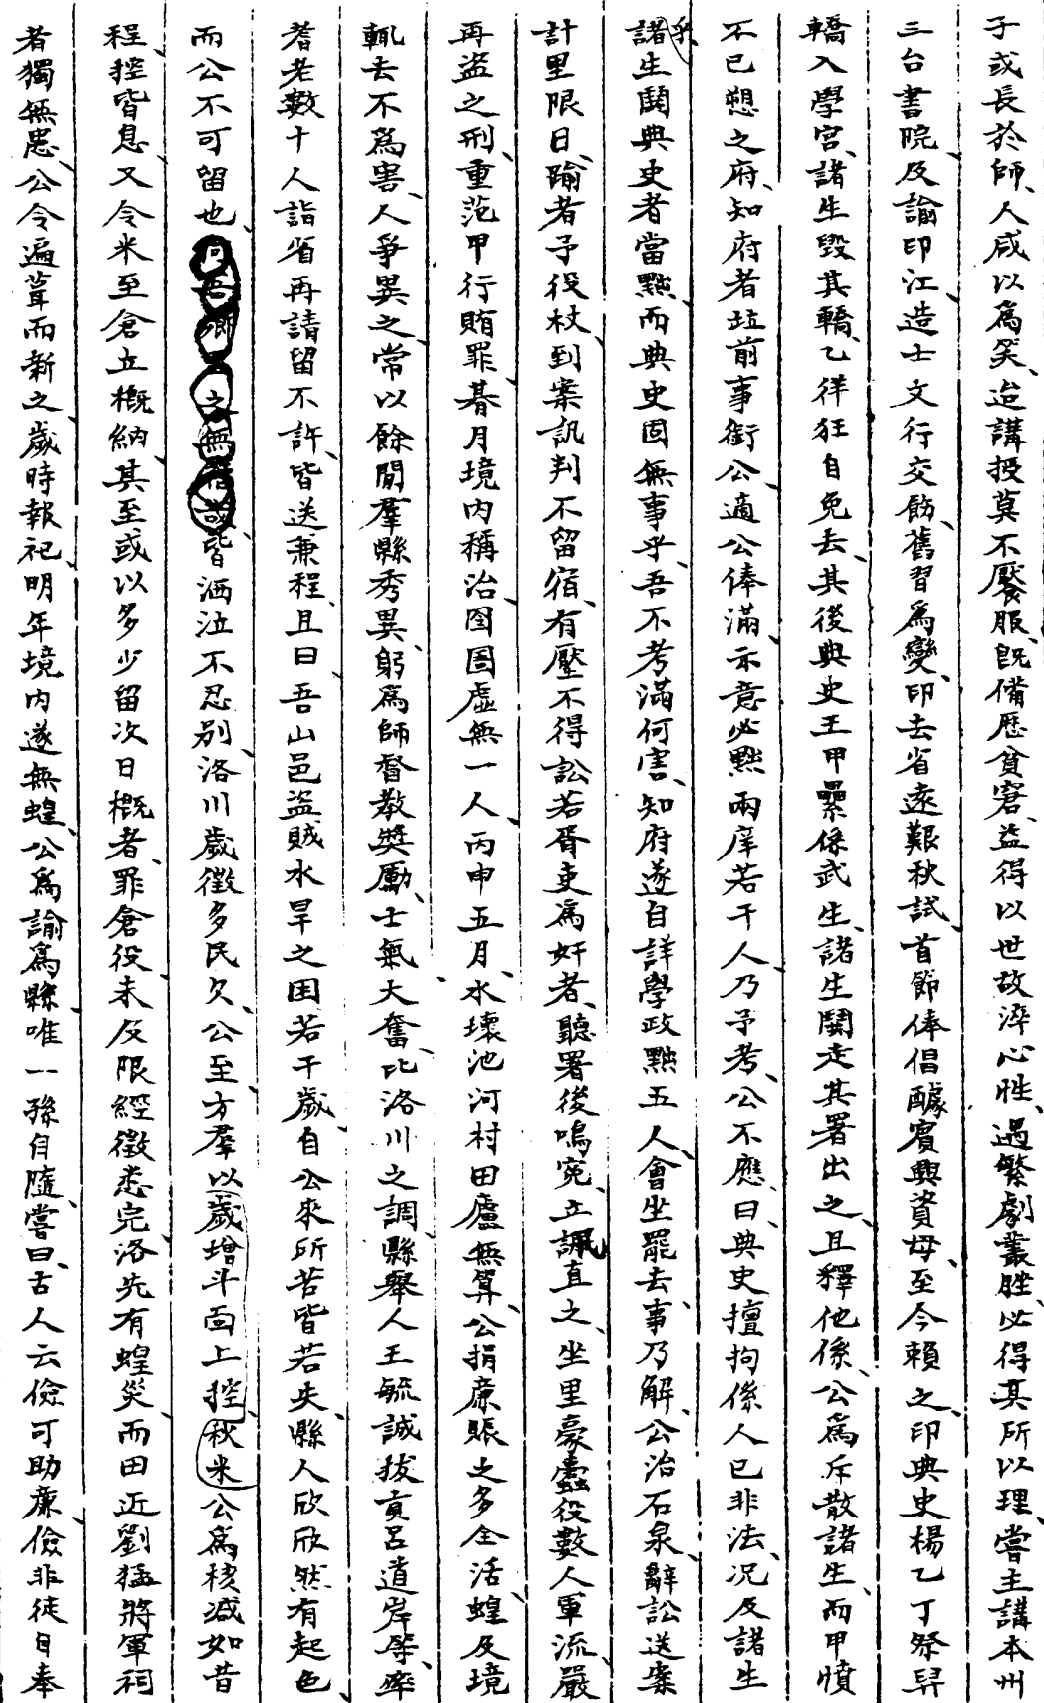 子或長於師、人咸以為笑、迨講授莫不厭服、既備歷貧窘、益得以世故淬心性、遇繁劇叢脞必得其所以理、嘗主講本州
三台書院、及諭印江、造士文行交飭、舊習為變、印去省遠艱秋試、首節俸倡醵賓興資母、至今賴之、印典史楊乙丁祭舁
轎入學宮、諸生毀其轎、乙佯狂自免去、其後典史王甲纍係武生、諸生鬨走其署出之、且釋他係、公為斥散諸生、而甲憤
不已愬之府、知府者竝前事銜公、適公俸滿、示意必黜兩庠若干人、乃予考、公不應、曰、典史擅拘係人已非法、况及諸生
乎、諸生鬨典史者當黜、而典史固無事乎、吾不考滿何害、知府遂自詳學政黜五人、會坐罷去、事乃解、公治石泉、辭訟送案
計里限日、踰者予役杖、到案訊判不留宿、有壓不得訟若胥吏為奸者、聽署後鳴寃、立諷直之、坐里豪蠹役數人軍流、嚴
再盜之刑、重范甲行賄罪、朞月境內稱治、囹圄虛無一人、丙申五月、水壞池河村田廬無算、公捐廉賑之、多全活、蝗及境
輒去不為害、人爭異之、常以餘閒羣縣秀異、躬為師督教獎勵、士氣大奮、比洛川之調、縣舉人王毓誠拔貢呂道岸等、率
耆老數十人詣省再請留不許、皆送兼程、且曰、吾山邑盜賊水旱之困若干歲、自公來所苦皆若失、縣人欣欣然有起色
而公不可留也、何吾鄉之無皆洒泣不忍別、洛川歲徵多民欠、公至方羣以歲增斗面上控、秋米公為核減如昔
程、控皆息、又令米至倉立概納、其至或以多少留次日概者、罪倉役、未及限經徵悉完、洛先有蝗災、而田近劉猛將軍祠
者獨無患、公令遍葺而新之、歲時報祀、明年境內遂無蝗、公為諭為縣、唯一孫自隨、嘗曰、古人云儉可助廉、儉非徒自奉